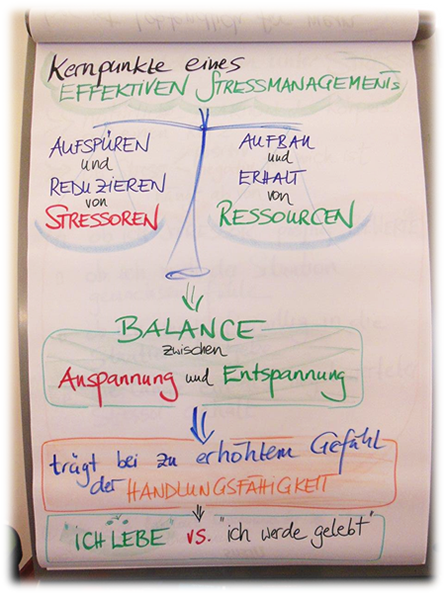 Kernpunkte eines
EFFEKTIVEN STRESSMANAGEMENTs
AUFSPÜREN
und
REDUZIEREN
von
STRESSOREN
AUFBAU
und
ERHALT
von
RESSOURCEN
BALANCE
zwischen
Anspannung und Entspannung
trägt bei zu erhöhtem Gefühl
der HANDLUNGSFÄHIGKEIT
ICH LEBE vs. "ich werde gelebt"